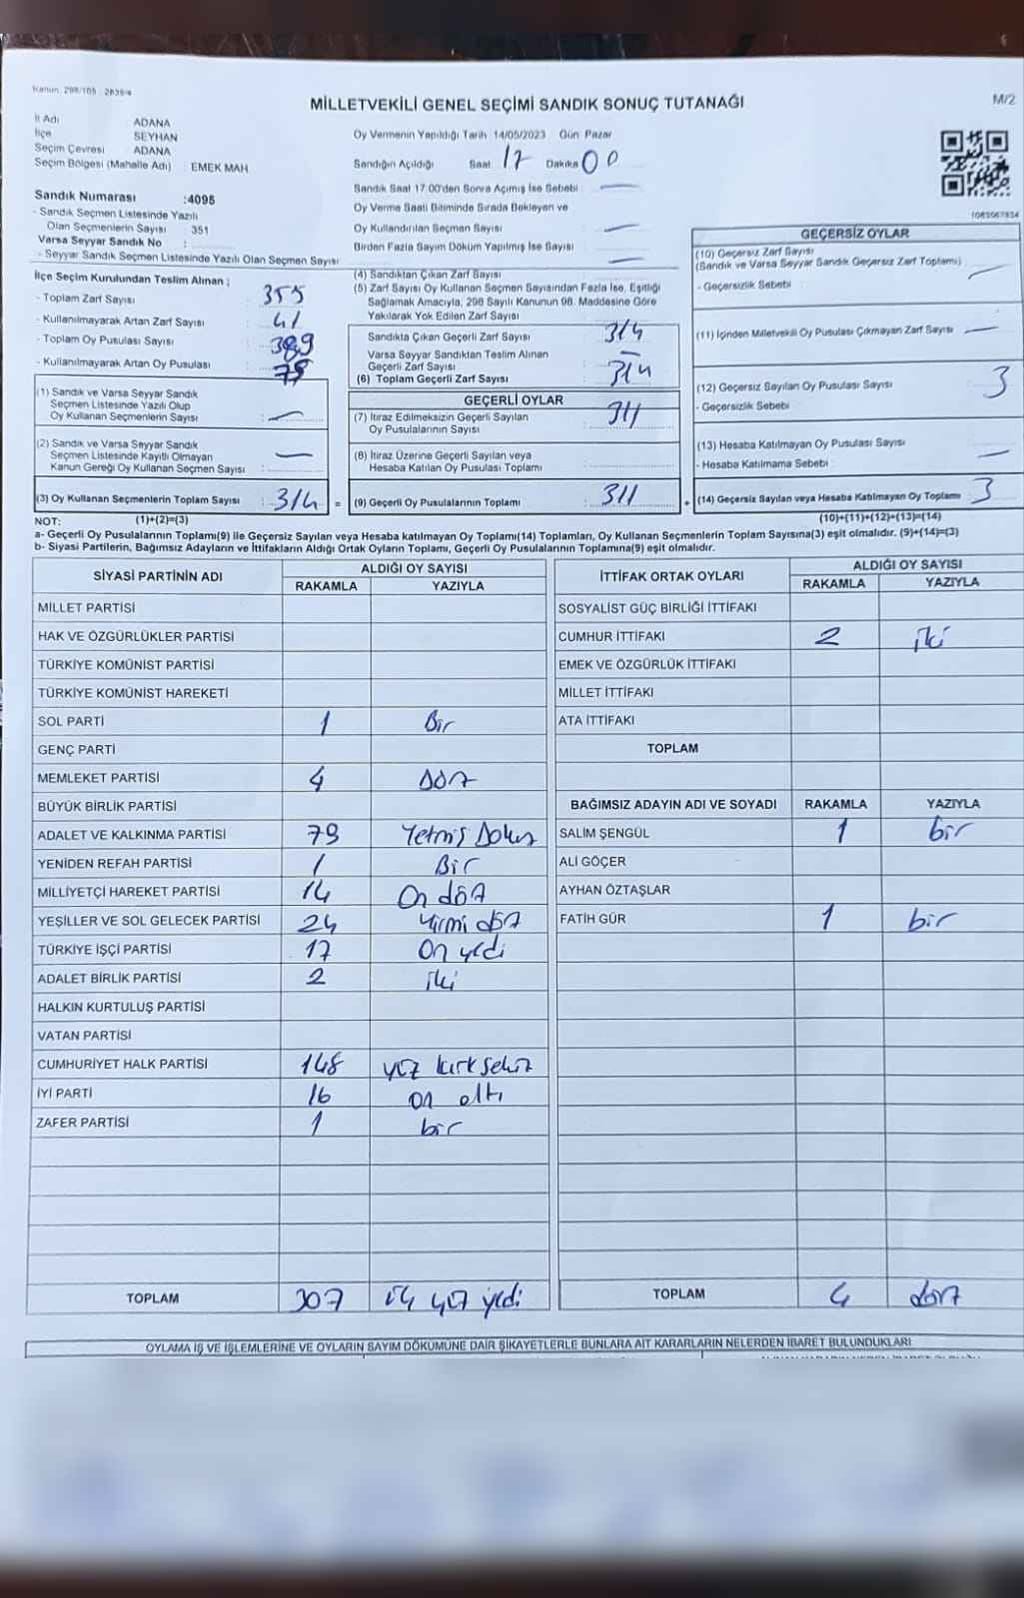 Kanun: 298/105 - 2839/4
MİLLETVEKİLİ GENEL SEÇİMİ SANDIK SONUÇ TUTANAĞI
M/2
İl Adı ADANA
İlçe SEYHAN
Seçim Çevresi ADANA
Seçim Bölgesi (Mahalle Adı) : EMEK MAH
Oy Vermenin Yapıldığı Tarih 14/05/2023 Gün Pazar
Sandığın Açıldığı Saat 17 Dakika 00
Sandık Saat 17.00'den Sonra Açımış İse Sebebi —
Oy Verme Saati Bitiminde Sırada Bekleyen ve
Oy Kullandırılan Seçmen Sayısı —
Birden Fazla Sayım Döküm Yapılmış İse Sayısı —
Sandık Numarası :4095
- Sandık Seçmen Listesinde Yazılı
Olan Seçmenlerin Sayısı 351
Varsa Seyyar Sandık No :
- Seyyar Sandık Seçmen Listesinde Yazılı Olan Seçmen Sayısı
İlçe Seçim Kurulundan Teslim Alınan ;
- Toplam Zarf Sayısı 355
- Kullanılmayarak Artan Zarf Sayısı 41
- Toplam Oy Pusulası Sayısı 389
- Kullanılmayarak Artan Oy Pusulası
(1) Sandık ve Varsa Seyyar Sandık
Seçmen Listesinde Yazılı Olup
Oy Kullanan Seçmenlerin Sayısı : —
(2) Sandık ve Varsa Seyyar Sandık
Seçmen Listesinde Kayıtlı Olmayan
Kanun Gereği Oy Kullanan Seçmen Sayısı : —
(3) Oy Kullanan Seçmenlerin Toplam Sayısı : 314 =
(1)+(2)=(3)
(4) Sandıktan Çıkan Zarf Sayısı :
(5) Zarf Sayısı Oy Kullanan Seçmen Sayısından Fazla İse, Eşitliği
Sağlamak Amacıyla, 298 Sayılı Kanunun 98. Maddesine Göre
Yakılarak Yok Edilen Zarf Sayısı
Sandıkta Çıkan Geçerli Zarf Sayısı : 314
Varsa Seyyar Sandıktan Teslim Alınan
Geçerli Zarf Sayısı : —
(6) Toplam Geçerli Zarf Sayısı : 314
GEÇERLİ OYLAR
(7) İtiraz Edilmeksizin Geçerli Sayılan
Oy Pusulalarının Sayısı : 311
(8) İtiraz Üzerine Geçerli Sayılan veya
Hesaba Katılan Oy Pusulası Toplamı :
(9) Geçerli Oy Pusulalarının Toplamı : 311 +
GEÇERSİZ OYLAR
(10) Geçersiz Zarf Sayısı
(Sandık ve Varsa Seyyar Sandık Geçersiz Zarf Toplamı) —
- Geçersizlik Sebebi :
(11) İçinden Milletvekili Oy Pusulası Çıkmayan Zarf Sayısı —
(12) Geçersiz Sayılan Oy Pusulası Sayısı 3
- Geçersizlik Sebebi
(13) Hesaba Katılmayan Oy Pusulası Sayısı —
- Hesaba Katılmama Sebebi
(14) Geçersiz Sayılan veya Hesaba Katılmayan Oy Toplamı 3
(10)+(11)+(12)+(13)=(14)
NOT:
a- Geçerli Oy Pusulalarının Toplamı(9) ile Geçersiz Sayılan veya Hesaba katılmayan Oy Toplamı(14) Toplamları, Oy Kullanan Seçmenlerin Toplam Sayısına(3) eşit olmalıdır. (9)+(14)=(3)
b- Siyasi Partilerin, Bağımsız Adayların ve İttifakların Aldığı Ortak Oyların Toplamı, Geçerli Oy Pusulalarının Toplamına(9) eşit olmalıdır.
SİYASİ PARTİNİN ADI ALDIĞI OY SAYISI
RAKAMLA YAZIYLA
MİLLET PARTİSİ
HAK VE ÖZGÜRLÜKLER PARTİSİ
TÜRKİYE KOMÜNİST PARTİSİ
TÜRKİYE KOMÜNİST HAREKETİ
SOL PARTİ 1 Bir
GENÇ PARTİ
MEMLEKET PARTİSİ 4 DÖRT
BÜYÜK BİRLİK PARTİSİ
ADALET VE KALKINMA PARTİSİ 79 Yetmiş Dokuz
YENİDEN REFAH PARTİSİ 1 Bir
MİLLİYETÇİ HAREKET PARTİSİ 14 On dört
YEŞİLLER VE SOL GELECEK PARTİSİ 24 Yirmi dört
TÜRKİYE İŞÇİ PARTİSİ 17 On yedi
ADALET BİRLİK PARTİSİ 2 iki
HALKIN KURTULUŞ PARTİSİ
VATAN PARTİSİ
CUMHURİYET HALK PARTİSİ 148 yüz kırk sekiz
İYİ PARTİ 16 on altı
ZAFER PARTİSİ 1 bir
TOPLAM 307 üç yüz yedi
İTTİFAK ORTAK OYLARI ALDIĞI OY SAYISI
RAKAMLA YAZIYLA
SOSYALİST GÜÇ BİRLİĞİ İTTİFAKI
CUMHUR İTTİFAKI 2 iki
EMEK VE ÖZGÜRLÜK İTTİFAKI
MİLLET İTTİFAKI
ATA İTTİFAKI
TOPLAM
BAĞIMSIZ ADAYIN ADI VE SOYADI RAKAMLA YAZIYLA
SALİM ŞENGÜL 1 bir
ALİ GÖÇER
AYHAN ÖZTAŞLAR
FATİH GÜR 1 bir
TOPLAM 4 dört
OYLAMA İŞ VE İŞLEMLERİNE VE OYLARIN SAYIM DÖKÜMÜNE DAİR ŞİKAYETLERLE BUNLARA AİT KARARLARIN NELERDEN İBARET BULUNDUKLARI